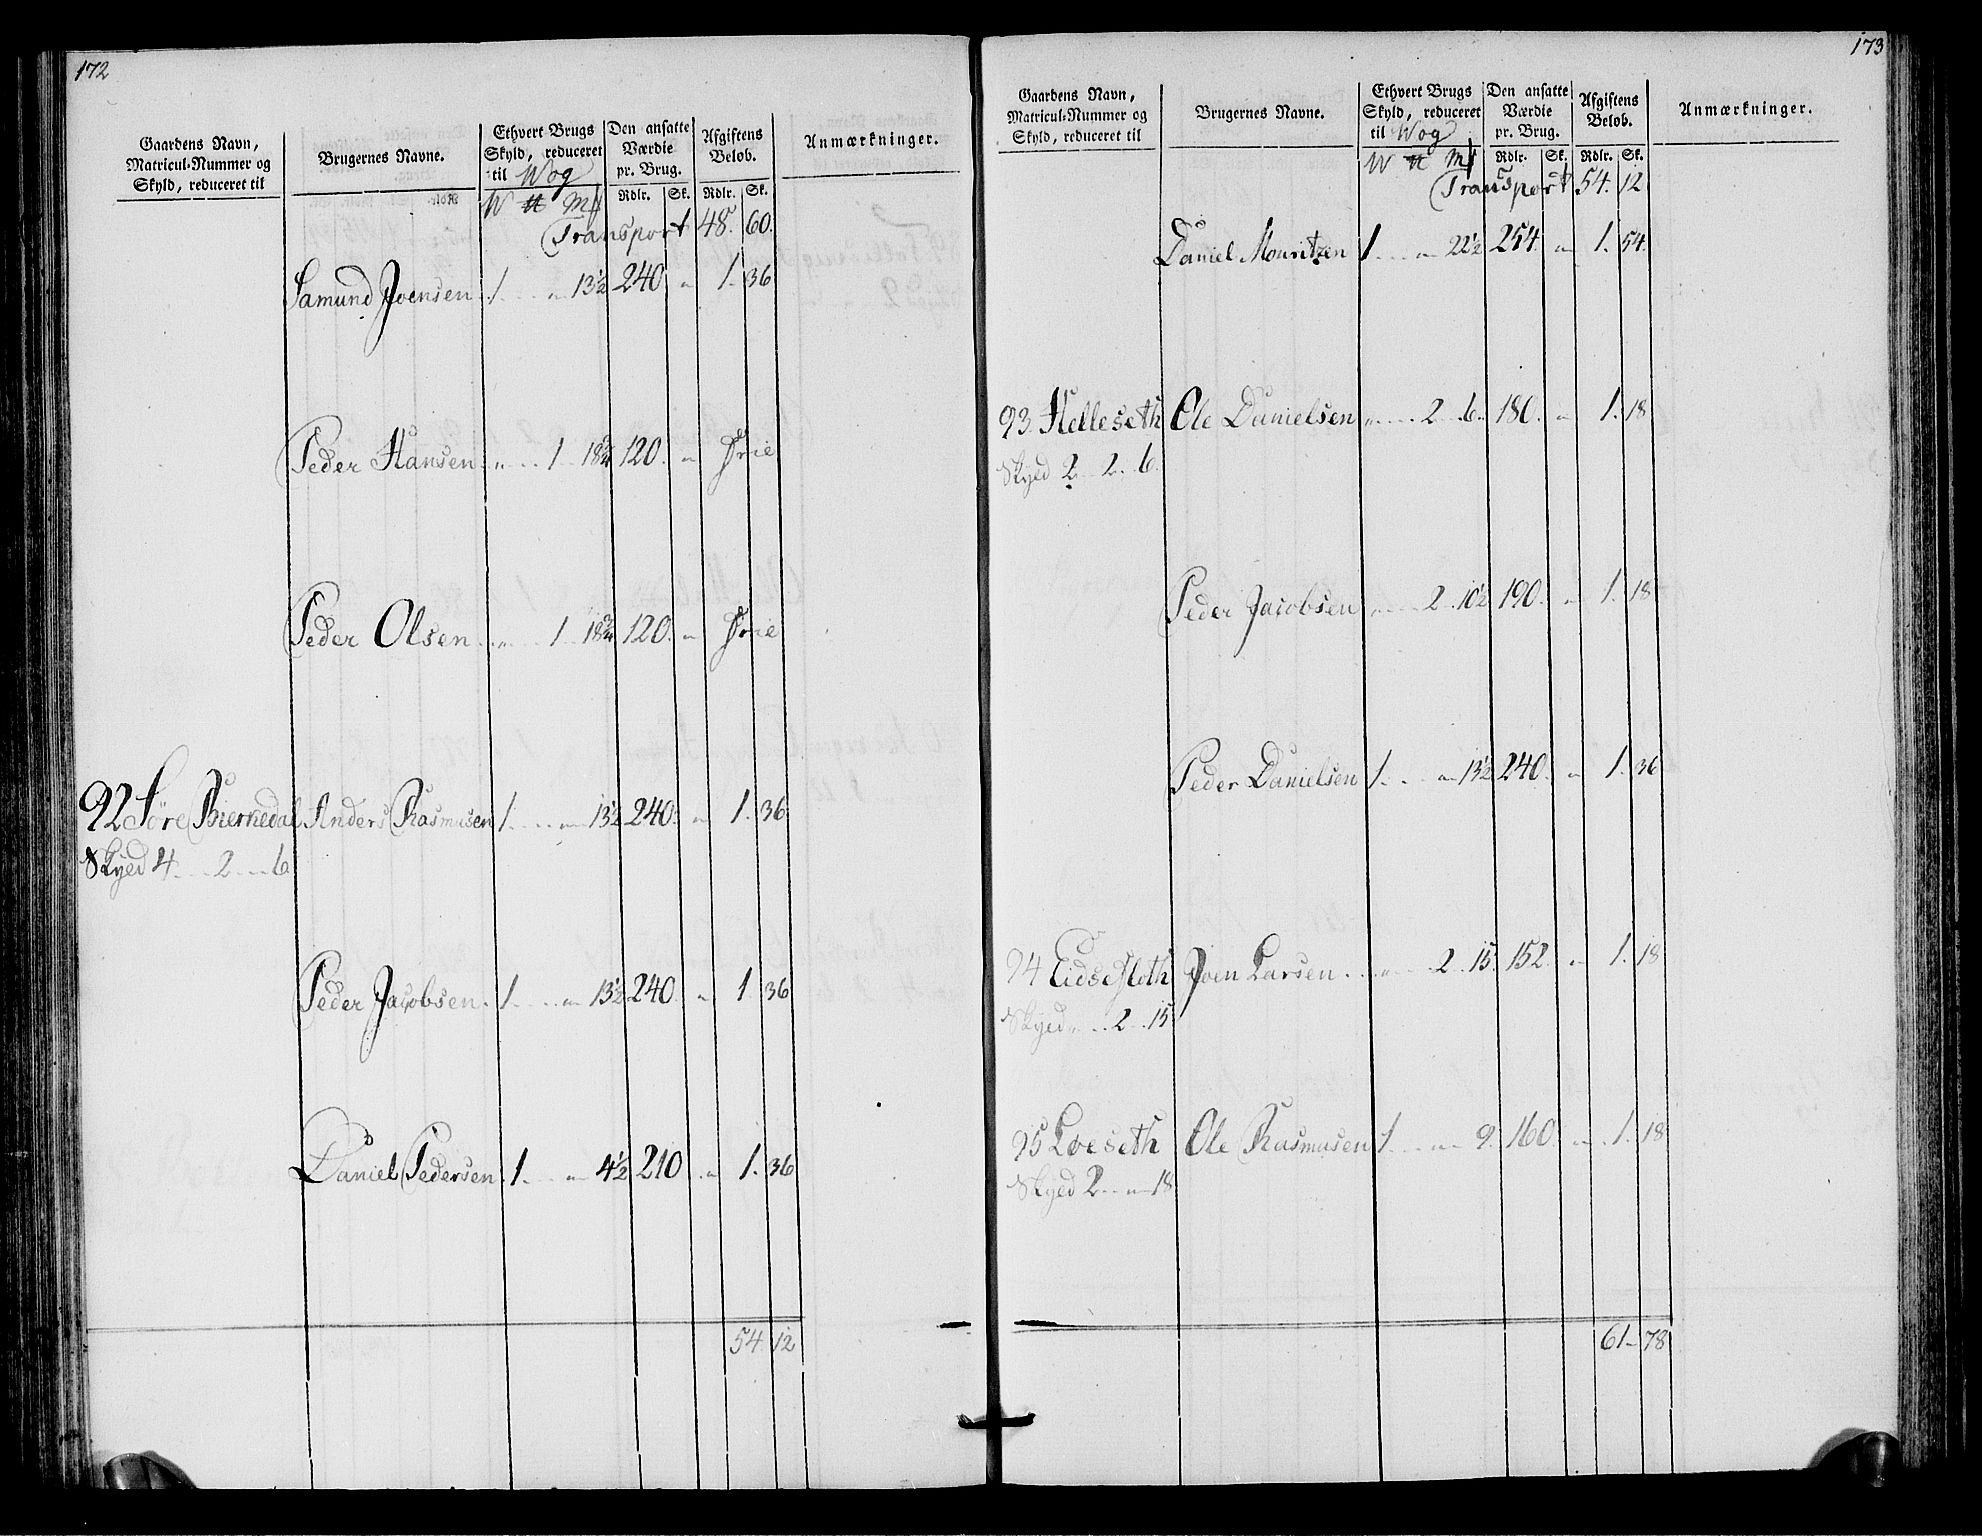 172
Gaardens Navn, Matricul-Nummer og Skyld, reduceret til
Brugernes Navne.
Ethvert Brugs Skyld, reduceret til Wog
Den ansatte Værdie pr. Brug.
Afgiftens Beløb.
Anmærkninger.
W ℔ Mk Rdlr. Sk. Rdlr. Sk.
Transport 48. 60.
Samund Joensen 1. „ 13½ 240. „ 1. 36
Peder Hansen „ 1 18¾ 120. „ Frie
Peder Olsen „ 1 18¾ 120. „ Frie
92 Søre Bierkedal Anders Rasmusen 1. „ 13½ 240. „ 1. 36
Skyld 4 2 6
Peder Jacobsen. 1. „ 13½ 240. „ 1. 36
Daniel Pedersen 1. „ 4½ 210 „ 1. 36
54 12
173
Gaardens Navn, Matricul-Nummer og Skyld, reduceret til
Brugernes Navne.
Ethvert Brugs Skyld, reduceret til Wog
Den ansatte Værdie pr. Brug.
Afgiftens Beløb.
Anmærkninger.
W ℔ Mk Rdlr. Sk. Rdlr. Sk.
Transport 54. 12
Daniel Mouritzen 1. „ 22½ 254. „ 1. 54.
93 Helleseth Ole Danielsen „ 2 6 180. „ 1. 18
Skyld 2 2 6.
Peder Jacobsen „ 2 10½ 190. „ 1. 18
Peder Danielsen 1. „ 13½ 240. „ 1. 36
94 Eidsefloth Joen Larsen „ 2 15 152 „ 1. 18
Skyld „ 2 15
95 Loeseth Ole Rasmusen 1 „ 9. 160. „ 1. 18
Skyld 2 „ 18
61 78